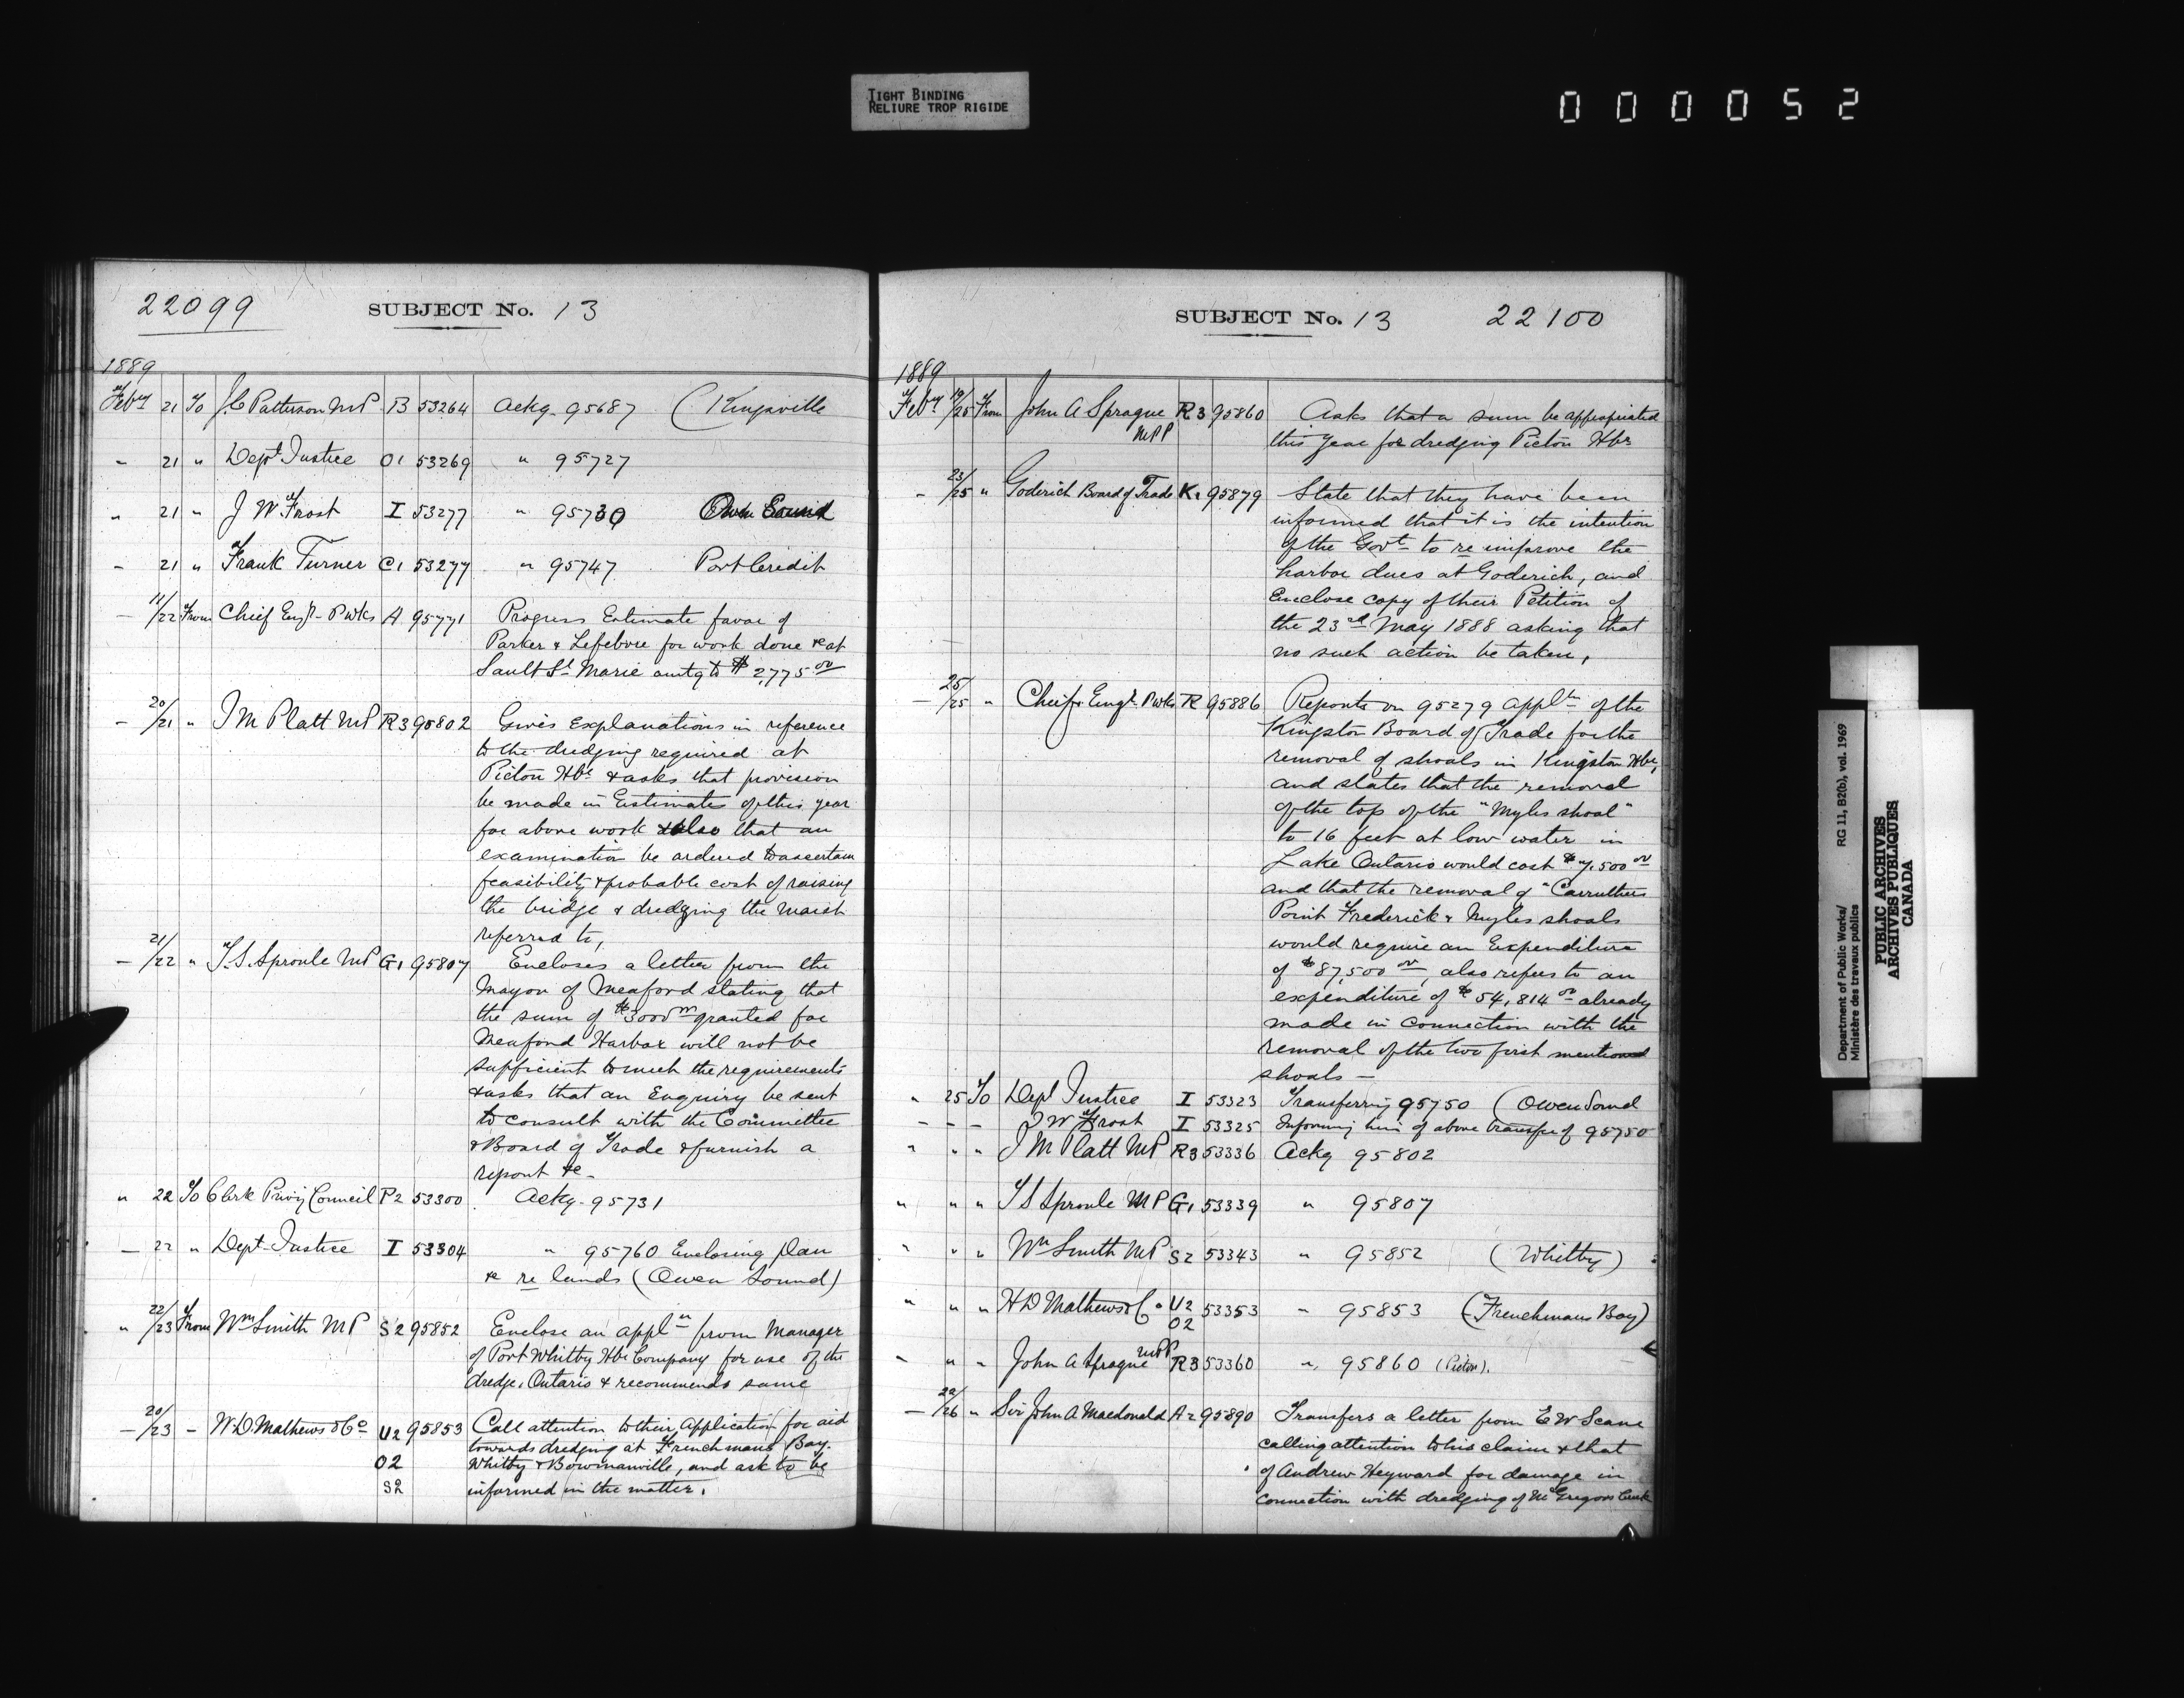 TIGHT BINDING
RELIURE TROP RIGIDE
000052
22099 SUBJECT No. 13
1889
Feby 21 To J.C Patterson MP B 53264 Ackg 95687 (Kingsville
" 21 " Dept Justice O1 53269 " 95727
" 21 " J W. Frost I 53277 " 95730 Owen Sound
" 21 " Frank Turner C1 53277 " 95747 Port Credit
— 11/22 From Chief Engr P Wks A 95771 Progress Estimate favor of
Parker & Lefebvre for work done &c at
Sault St Marie amtg to $2,775 00
— 20/21 " J M Platt MP R3 95802 Gives explanations in reference
to the dredging required at
Picton Hbr & asks that provision
be made in Estimates of this year
for above work & also that an
examination be ordered to ascertain
feasibility & probable cost of raising
the bridge & dredging the marsh
referred to,
— 21/22 " T.S. Sproule MP G1 95807 Encloses a letter from the
Mayor of Meaford stating that
the sum of $3000 00 granted for
Meaford Harbor will not be
sufficient to meet the requirements
& asks that an Enquiry be sent
to consult with the Committee
& Board of Trade & furnish a
report &c —
" 22 To Clerk Privy Council P2 53300 Ackg 95731
— 22 " Dept Justice I 53304 " 95760 Enclosing Plan
&c re lands (Owen Sound)
" 22/23 From Wm Smith MP S2 95852 Enclose an appln from Manager
of Port Whitby Hbr Company for use of the
dredge, Ontario & recommends same
— 20/23 — W.D. Mathews & Co U2 95853 Call attention to their application for aid
towards dredging at Frenchmans Bay.
O2 Whitby & Bowmanville, and ask to be
S2 informed in the matter.
SUBJECT No. 13 22100
1889
Feby 19/25 From John A Sprague R3 95860 Asks that a sum be appropriated
MPP this year for dredging Picton Hbr
— 23/25 " Goderich Board of Trade K1 95879 State that they have been
informed that it is the intention
of the Govt to re improve the
harbor dues at Goderich, and
Enclose copy of their Petition of
the 23rd May 1888 asking that
no such action be taken,
— 25/25 " Chief Engr P Wks R 95886 Reports on 95279 appltn of the
Kingston Board of Trade for the
removal of shoals in Kingston Hbr,
and states that the removal
of the top of the "Myles shoal"
to 16 feet at low water in
Lake Ontario would cost $7,500 00
and that the removal of "Carruthers
Point Frederick & Myles shoals
would require an Expenditure
of $87,500 00, also refers to an
expenditure of $54,814 00 already
made in connection with the
removal of the two first mentioned
shoals —
" 25 To Dept Justice I 53323 Transferring 95750 (Owen Sound
— — — J W Frost I 53325 Informing him of above transfer of 95750
" " " J M Platt MP R3 53336 Ackg 95802
" " " T S Sproule MP G1 53339 " 95807
" " " Wm Smith MP S2 53343 " 95852 (Whitby)
" " " H D Mathews & Co U2 53353 " 95853 (Frenchmans Bay)
O2
" " " John A Sprague MPP R3 53360 " 95860 (Picton).
— 22/26 " Sir John A Macdonald A2 95890 Transfers a letter from E W Scane
calling attention to his claim & that
of Andrew Heyward for damage in
connection with dredging of McGregors Creek
Department of Public Works/ RG 11, B2(b), vol. 1969
Ministère des travaux publics
PUBLIC ARCHIVES
ARCHIVES PUBLIQUES
CANADA